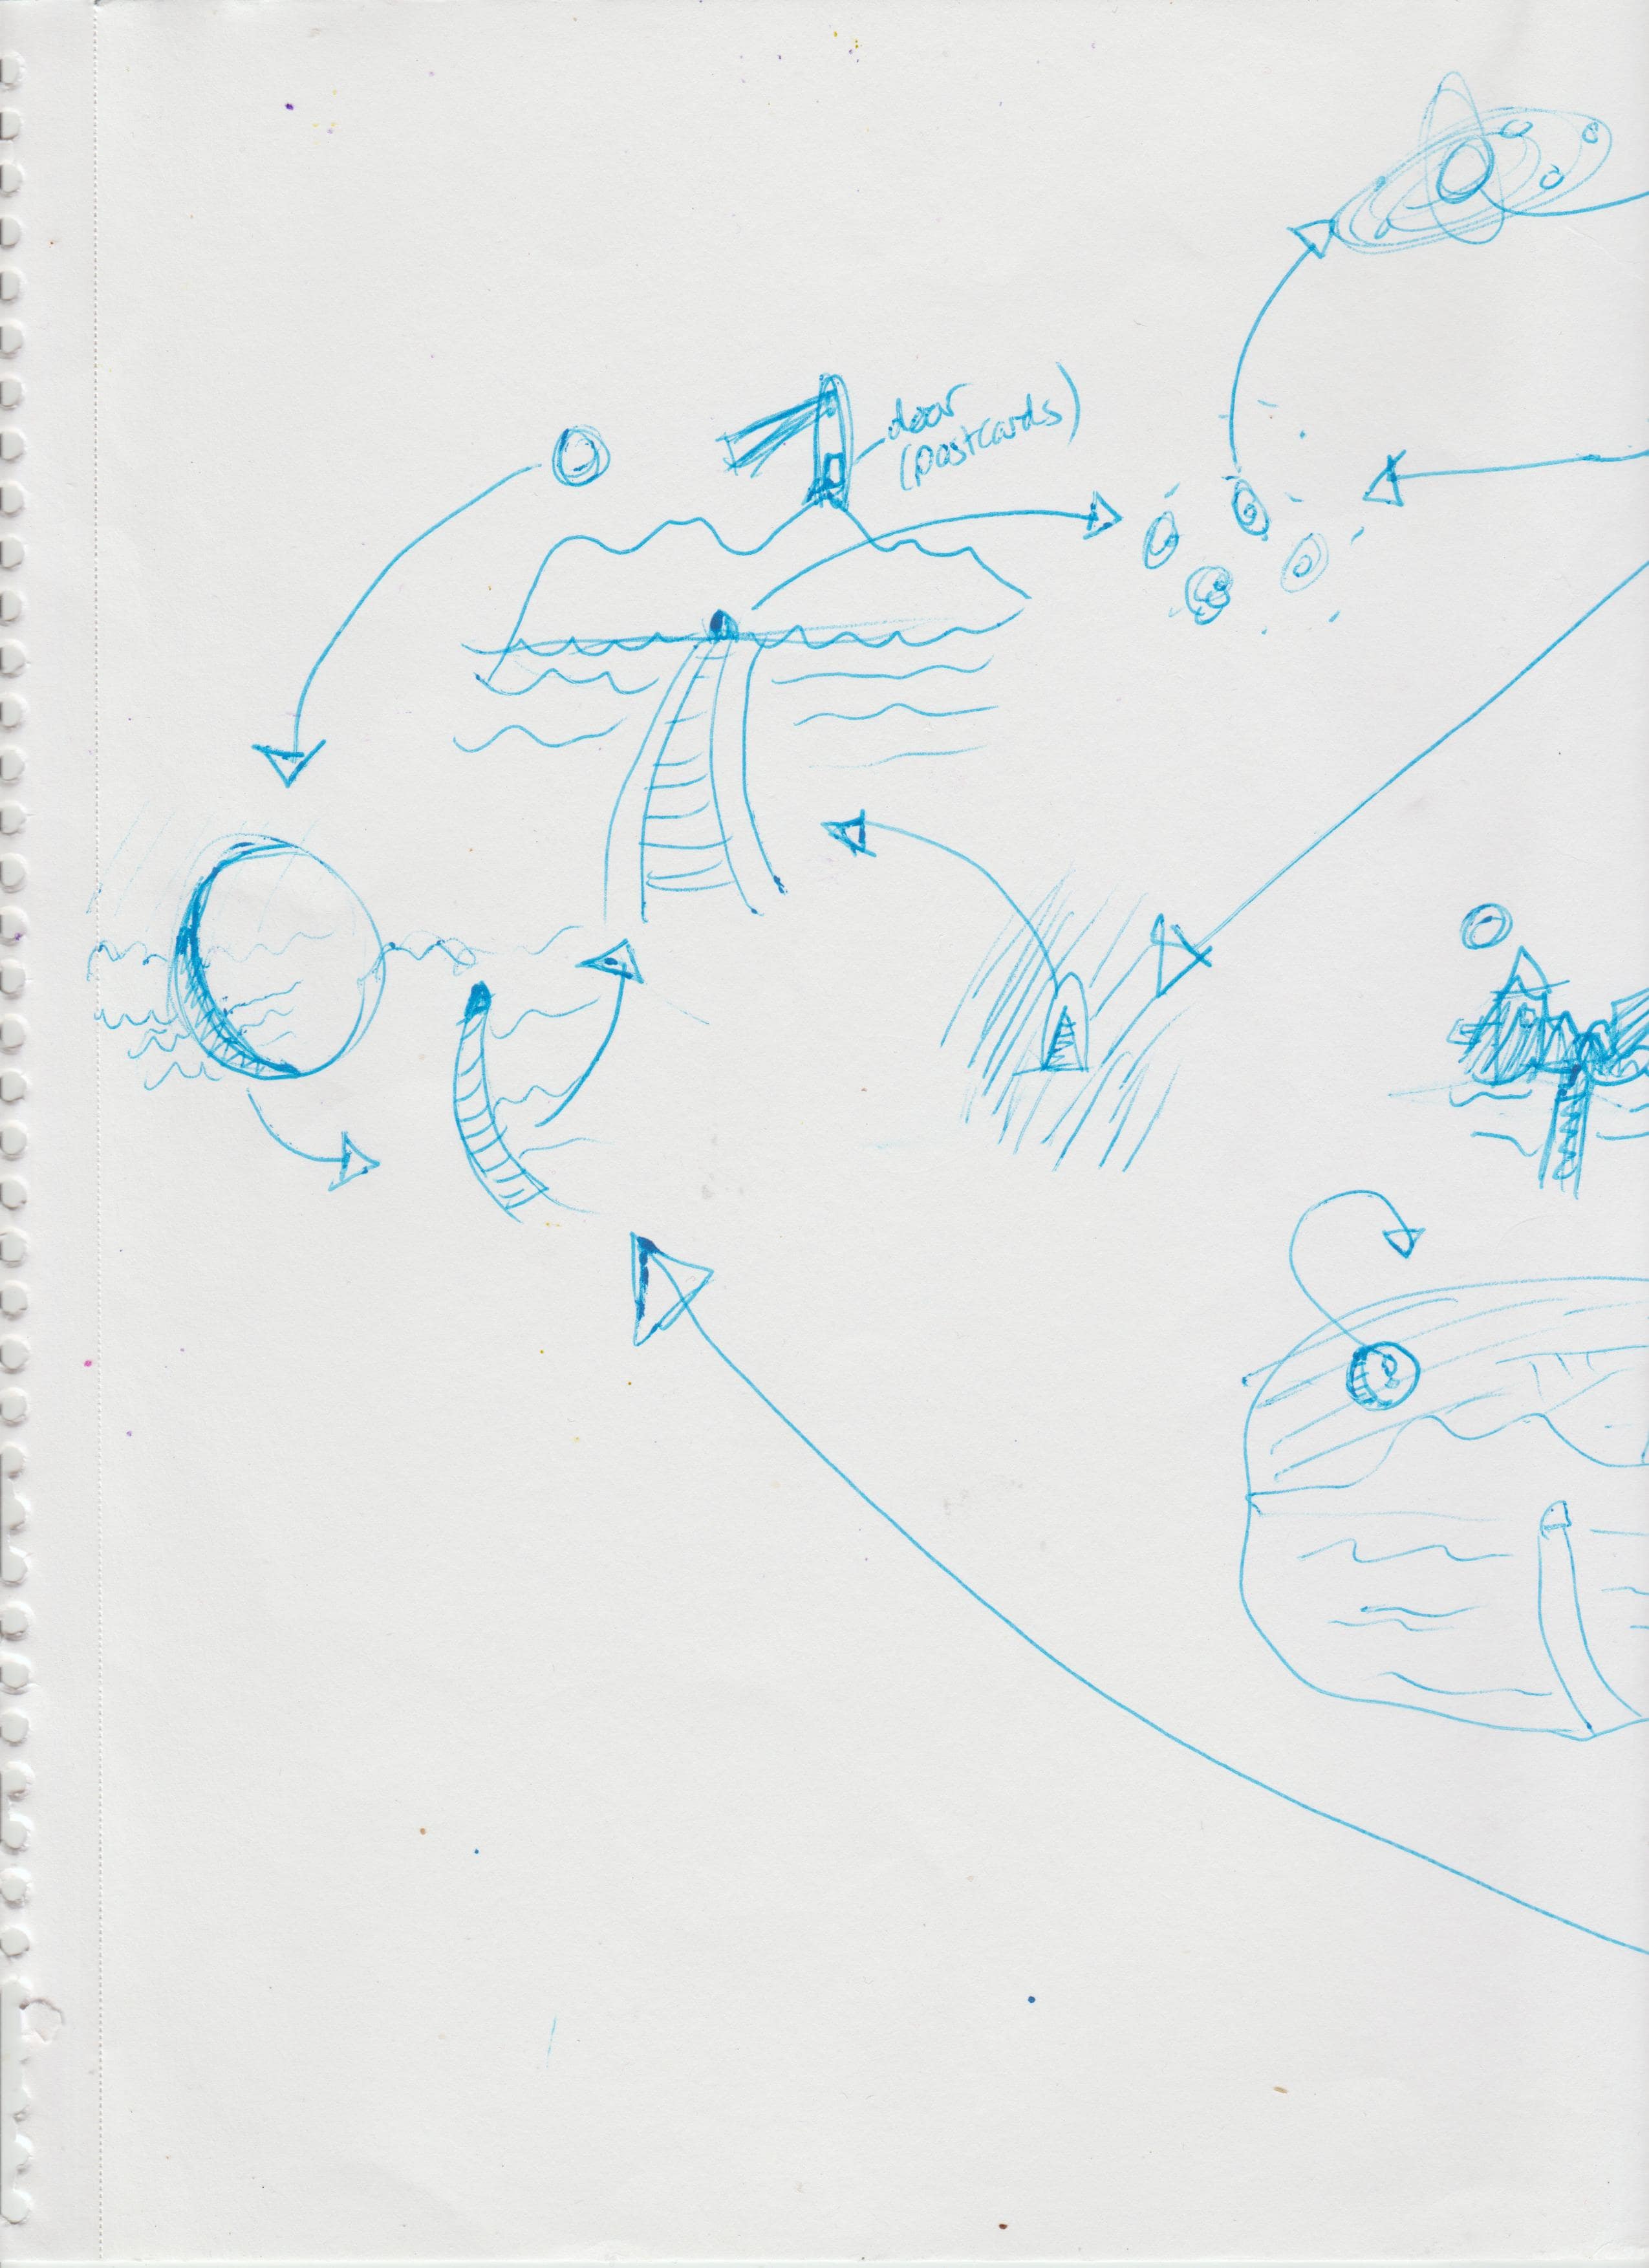 door
(postcards)